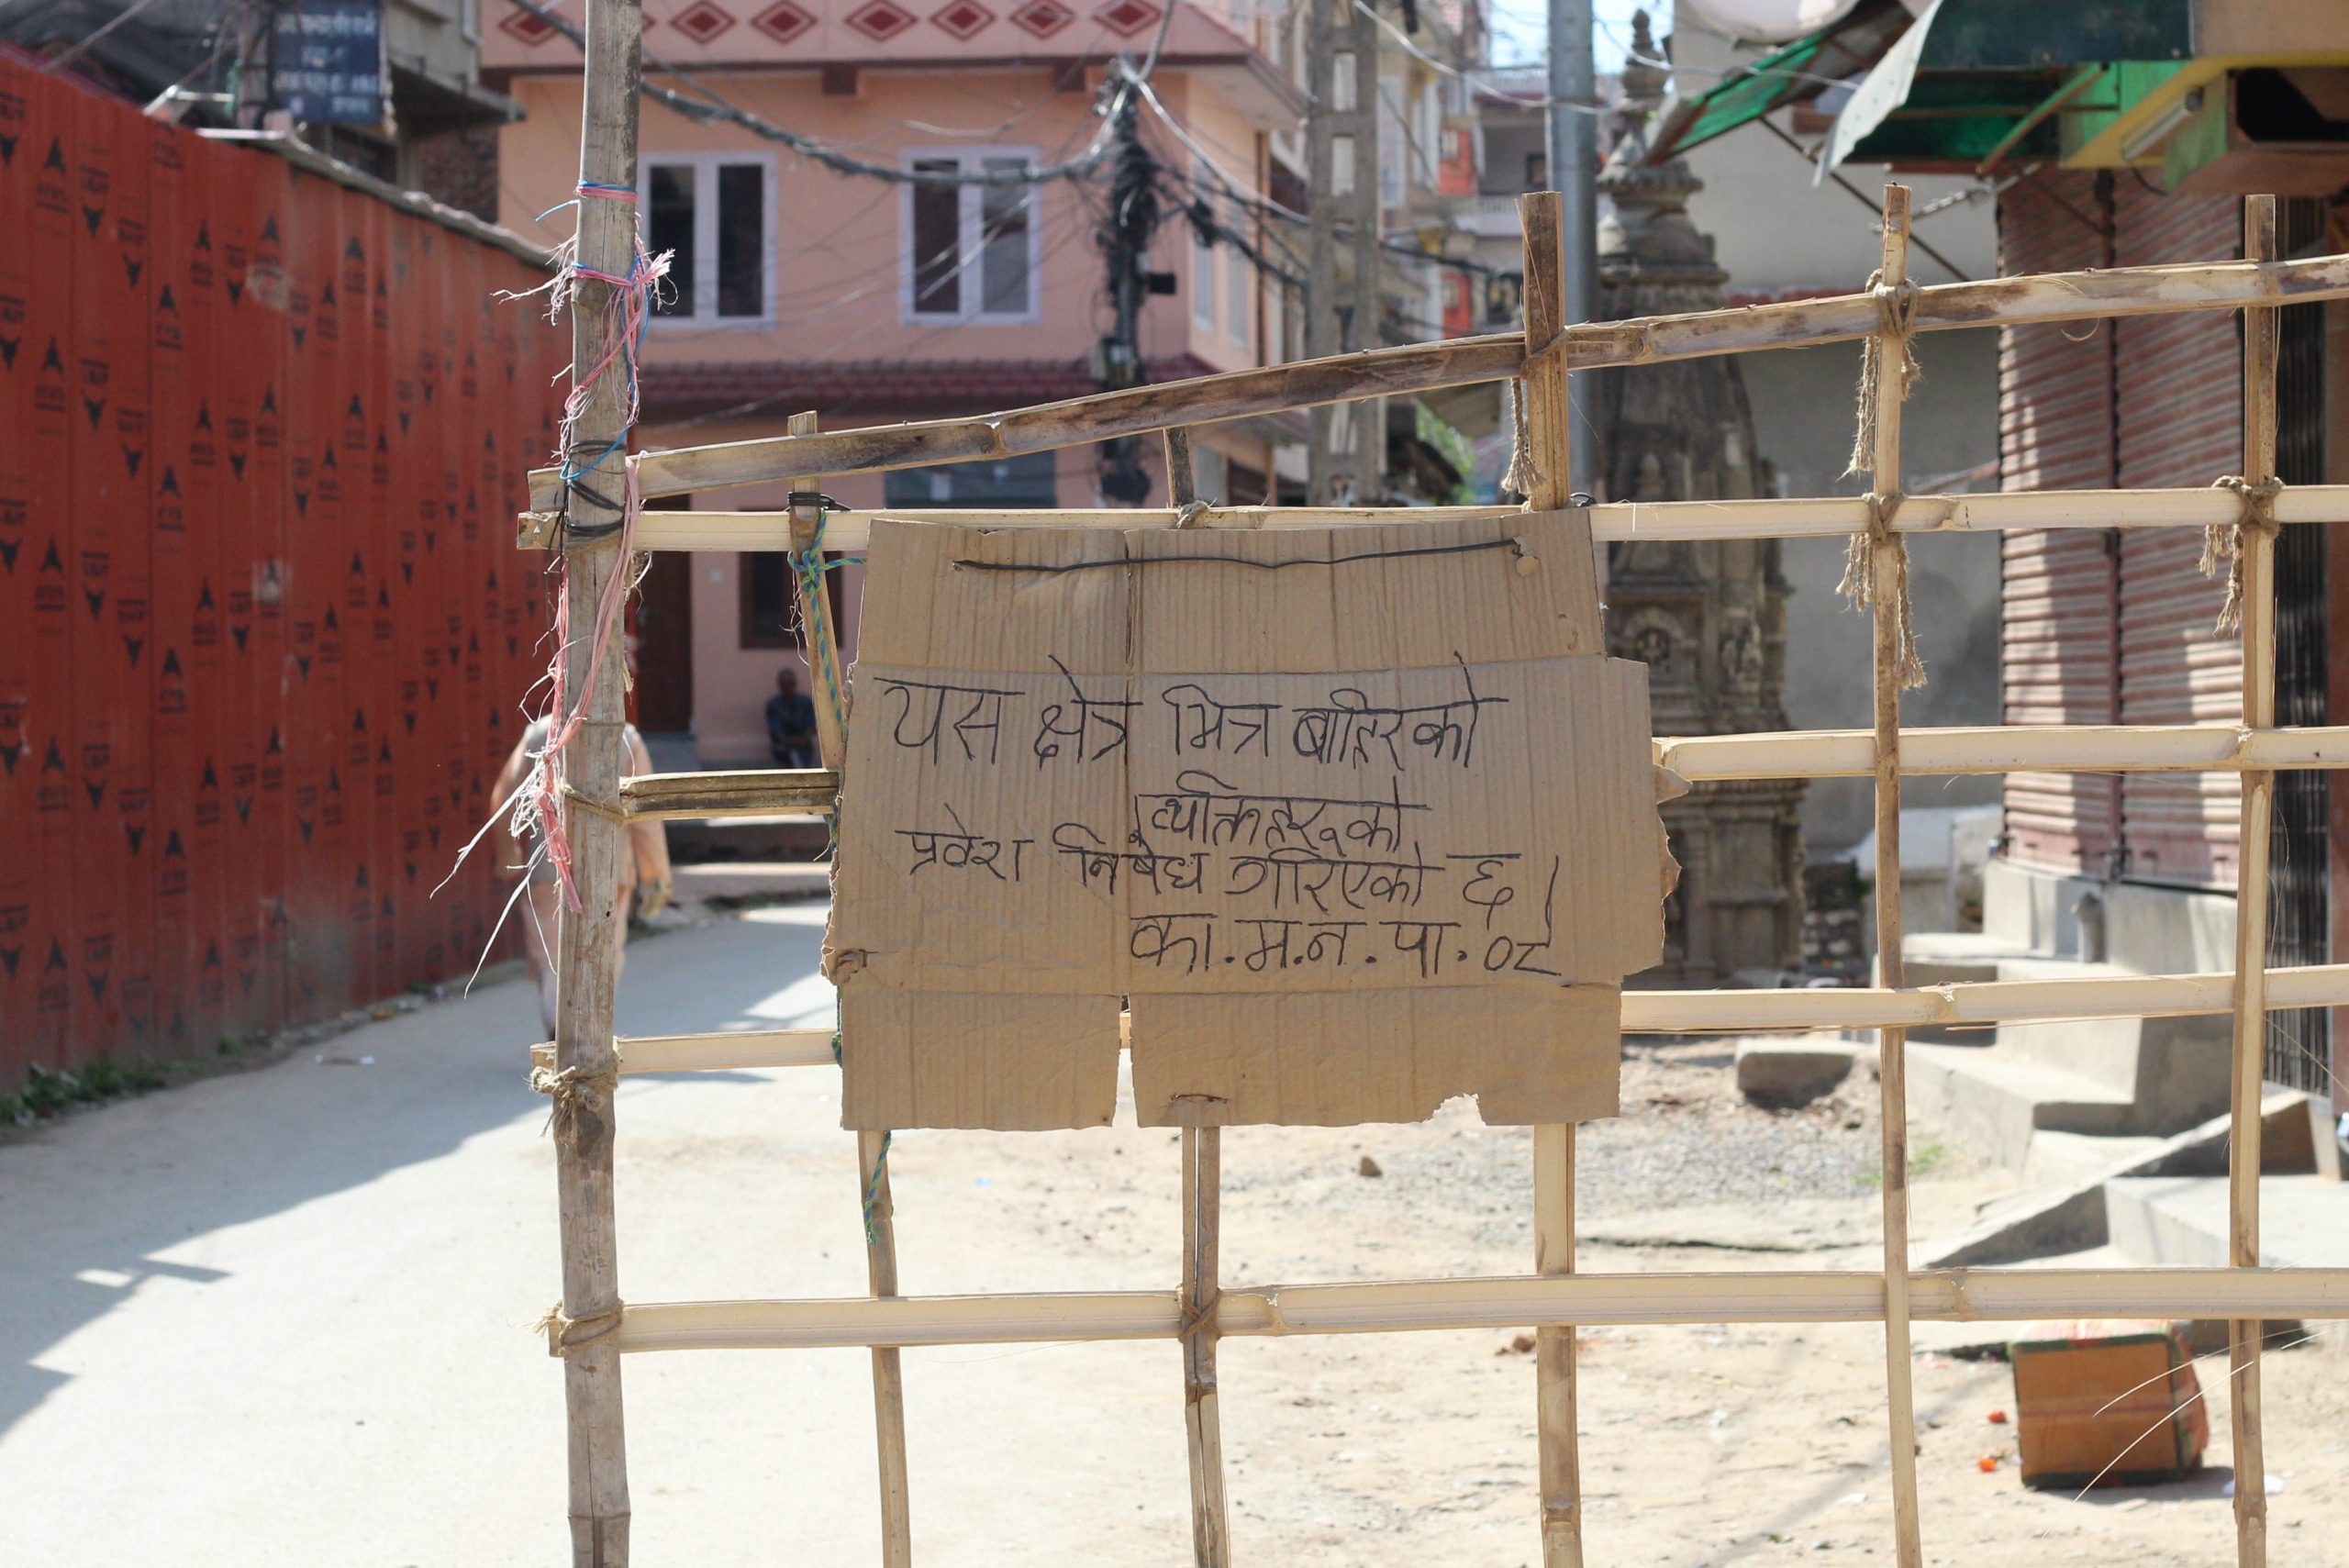 यस क्षेत्र भित्र बाहिरको
व्यक्तिहरूको
प्रवेश निषेध गरिएको छ।
का.म.न.पा.०८